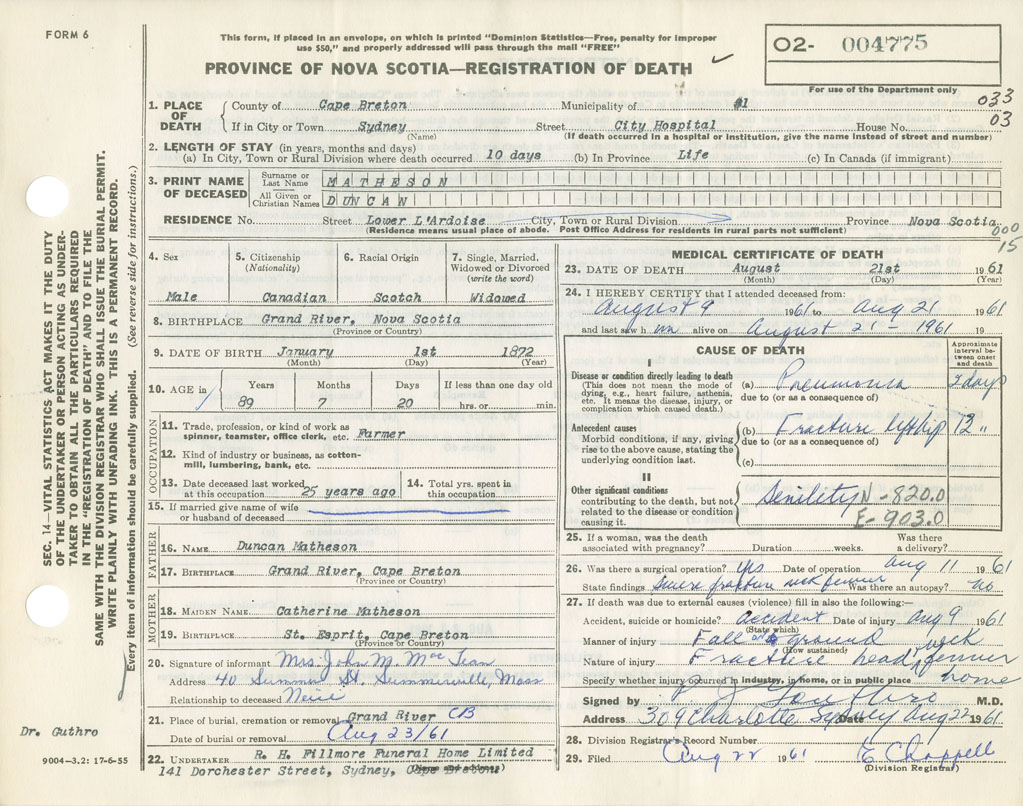 FORM 6
This form, if placed in an envelope, on which is printed "Dominion Statistics—Free, penalty for improper
use $50," and properly addressed will pass through the mail "FREE"
PROVINCE OF NOVA SCOTIA—REGISTRATION OF DEATH
02- 004775
For use of the Department only
033
03
1. PLACE OF DEATH
County of Cape Breton Municipality of #1
If in City or Town Sydney Street City Hospital House No.
(Name) (If death occurred in a hospital or institution, give the name instead of street and number)
2. LENGTH OF STAY (in years, months and days)
(a) In City, Town or Rural Division where death occurred 10 days (b) In Province Life (c) In Canada (if immigrant)
3. PRINT NAME OF DECEASED
Surname or Last Name MATHESON
All Given or Christian Names DUNCAN
RESIDENCE No. Street Lower L'Ardoise City, Town or Rural Division Province Nova Scotia
(Residence means usual place of abode. Post Office Address for residents in rural parts not sufficient)
000
15
4. Sex
Male
5. Citizenship (Nationality)
Canadian
6. Racial Origin
Scotch
7. Single, Married, Widowed or Divorced (write the word)
Widowed
8. BIRTHPLACE Grand River, Nova Scotia
(Province or Country)
9. DATE OF BIRTH January 1st 1872
(Month) (Day) (Year)
10. AGE in
Years Months Days If less than one day old
89 7 20 hrs. or min.
OCCUPATION
11. Trade, profession, or kind of work as
spinner, teamster, office clerk, etc. Farmer
12. Kind of industry or business, as cotton-
mill, lumbering, bank, etc.
13. Date deceased last worked at this occupation 25 years ago
14. Total yrs. spent in this occupation
15. If married give name of wife
or husband of deceased
FATHER
16. NAME Duncan Matheson
17. BIRTHPLACE Grand River, Cape Breton
(Province or Country)
MOTHER
18. MAIDEN NAME Catherine Matheson
19. BIRTHPLACE St. Esprit, Cape Breton
(Province or Country)
20. Signature of informant Mrs. John M. Mac
Address 40 Summer St. Summerville, Mass
Relationship to deceased Neice
21. Place of burial, cremation or removal Grand River CB
Date of burial or removal Aug 23/61
22. UNDERTAKER R. H. Fillmore Funeral Home Limited
141 Dorchester Street, Sydney, Cape Breton
(Name and address)
MEDICAL CERTIFICATE OF DEATH
23. DATE OF DEATH August 21st 1961
(Month) (Day) (Year)
24. I HEREBY CERTIFY that I attended deceased from:
August 9 1961 to Aug 21 1961
and last saw him alive on August 21 - 1961 19
CAUSE OF DEATH
Approximate interval between onset and death
I
Disease or condition directly leading to death
(This does not mean the mode of
dying, e.g., heart failure, asthenia,
etc. It means the disease, injury, or
complication which caused death.)
(a) Pneumonia 2 days
due to (or as a consequence of)
Antecedent causes
Morbid conditions, if any, giving
rise to the above cause, stating the
underlying condition last.
(b) Fracture left hip 12 "
due to (or as a consequence of)
(c)
II
Other significant conditions
contributing to the death, but not
related to the disease or condition
causing it.
Senility N - 820.0
E - 903.0
25. If a woman, was the death Was there
associated with pregnancy? Duration weeks. a delivery?
26. Was there a surgical operation? yes Date of operation Aug 11 1961
State findings fracture neck femur Was there an autopsy? no
27. If death was due to external causes (violence) fill in also the following:—
Accident, suicide or homicide? accident Date of injury Aug 9 1961
(State which)
Manner of injury Fall on ground
(How sustained)
Nature of injury Fracture head, neck femur
Specify whether injury occurred in industry, in home, or in public place home
Signed by M.D.
Address 309 Charlotte Sydney Date Aug 22 1961
28. Division Registrar's Record Number
29. Filed Aug 22 1961 E Chappell
(Division Registrar)
SEC. 14—VITAL STATISTICS ACT MAKES IT THE DUTY
OF THE UNDERTAKER OR PERSON ACTING AS UNDER-
TAKER TO OBTAIN ALL THE PARTICULARS REQUIRED
IN THE "REGISTRATION OF DEATH" AND TO FILE THE
SAME WITH THE DIVISION REGISTRAR WHO SHALL ISSUE THE BURIAL PERMIT.
WRITE PLAINLY WITH UNFADING INK. THIS IS A PERMANENT RECORD.
Every item of information should be carefully supplied. (See reverse side for instructions.)
Dr. Guthro
9004-3.2: 17-6-55